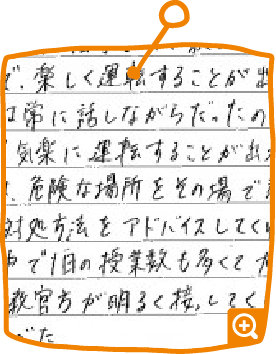 で、楽しく運転することが出
は常に話しながらだったの
気楽に運転することが出来
、危険な場所をその場で
対処方法をアドバイスしてく
で1日の授業数も多くて
教官方が明るく接してく
た